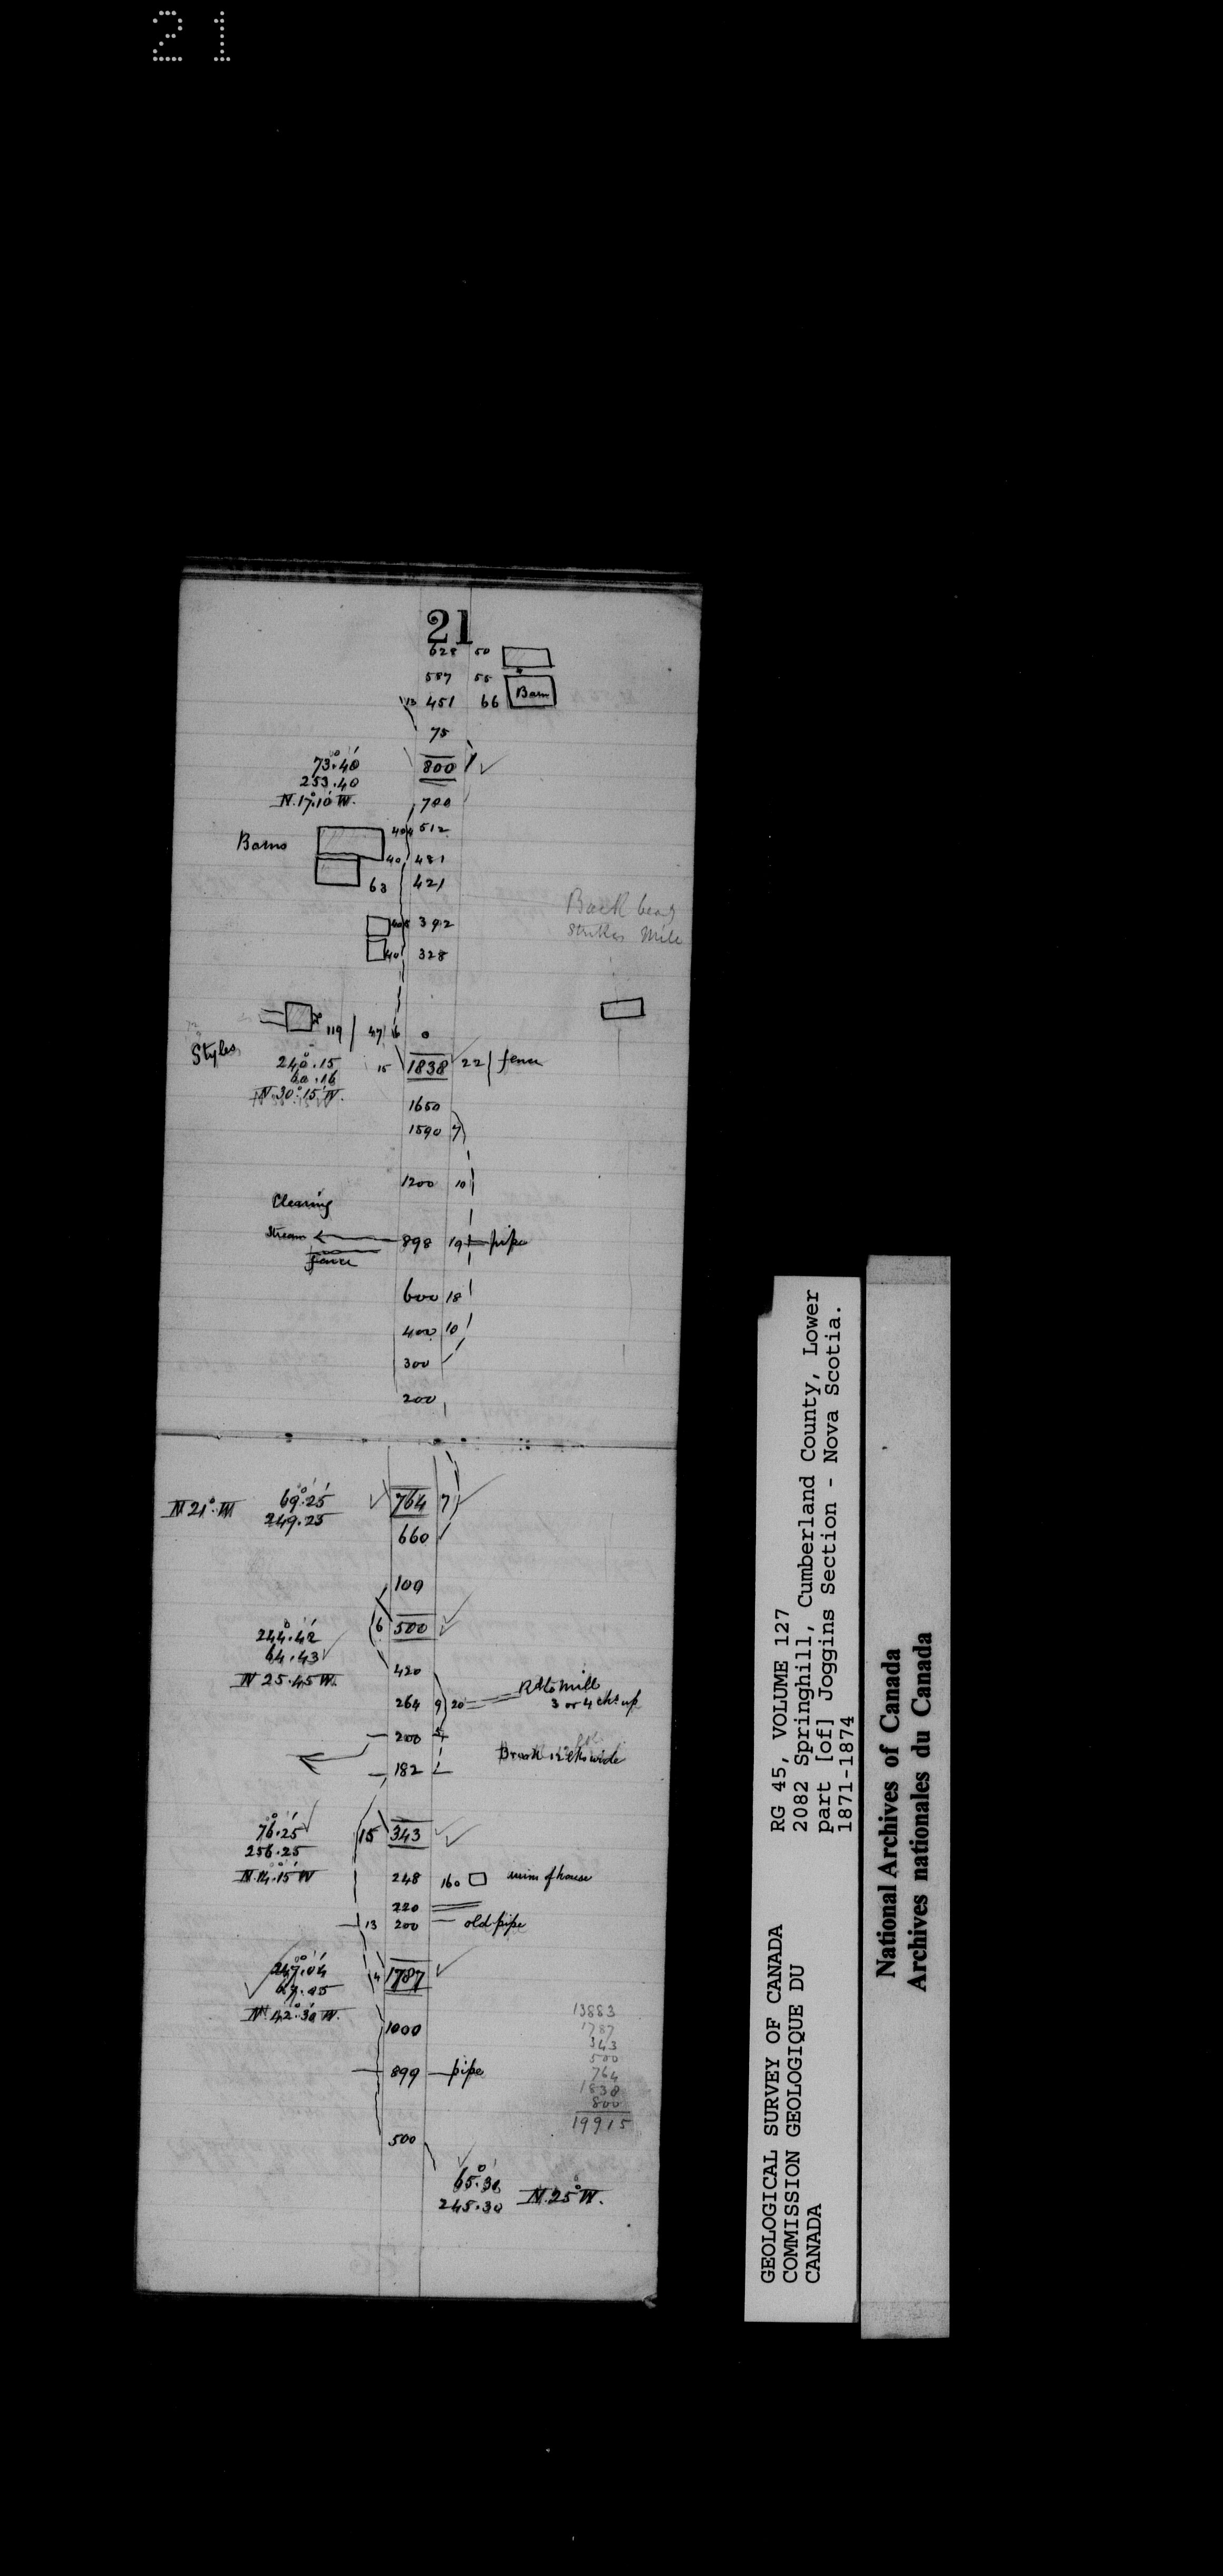 21
21
628 50
557 55
13 451 66 Barn
75
73°.40'
253.40
N.17°.10' W.
800
700
Barns
40 4 512
40 481
63 421
Back bear
Strikes Mile
40 8 392
40 328
119 47 16 0
Styles
240°.15
60.16
N.30°.15' W.
15 1838 22 fence
1650
1590 7
1200 10
Clearing
Stream 898 19 pipe
fence
600 18
400 10
300
200
N 21°. W
69°.25'
249.25
764 7
660
100
6 500
244°.42'
64.43
N 25.45 W.
420
264 9 20 Rd to Mill
3 or 4 chs up
200
Brook 12 lks wide
182
76°.25'
256.25
N.14°.15' W
15 343
248 160 ruins of house
220
13 200 old pipe
247°.04'
67.05
N.42°.30' W.
4 1787
1000
899 pipe
500
13883
1787
343
500
764
1838
800
19915
65°.30'
245.30 N.25° W.
GEOLOGICAL SURVEY OF CANADA
COMMISSION GEOLOGIQUE DU
CANADA
RG 45, VOLUME 127
2082 Springhill, Cumberland County, Lower
part [of] Joggins Section - Nova Scotia.
1871-1874
National Archives of Canada
Archives nationales du Canada